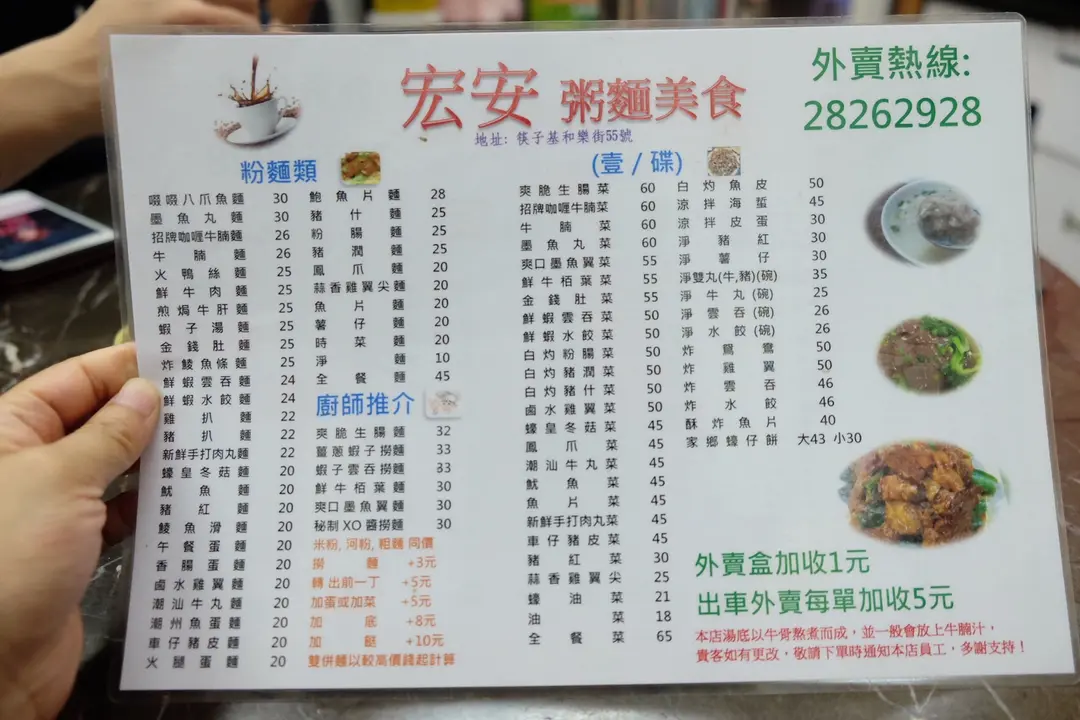 宏安 粥麵美食
地址: 筷子基和樂街55號
外賣熱線:
28262928
粉麵類
啜啜八爪魚麵 30
墨魚丸麵 30
招牌咖喱牛腩麵 26
牛腩麵 26
火鴨絲麵 25
鮮牛肉麵 25
煎焗牛肝麵 25
蝦子湯麵 25
金錢肚麵 25
炸鯪魚條麵 25
鮮蝦雲吞麵 24
鮮蝦水餃麵 24
雞扒麵 22
豬扒麵 22
新鮮手打肉丸麵 22
蠔皇冬菇麵 20
魷魚麵 20
豬紅麵 20
鯪魚滑麵 20
午餐蛋麵 20
香腸蛋麵 20
鹵水雞翼麵 20
潮汕牛丸麵 20
潮州魚蛋麵 20
車仔豬皮麵 20
火腿蛋麵 20
鮑魚片麵 28
豬什麵 25
粉腸麵 25
豬潤麵 25
鳳爪麵 20
蒜香雞翼尖麵 20
魚片麵 20
薯仔麵 20
時菜麵 20
淨麵 10
全餐麵 45
廚師推介
爽脆生腸麵 32
薑蔥蝦子撈麵 33
蝦子雲吞撈麵 33
鮮牛栢葉麵 30
爽口墨魚翼麵 30
秘制XO醬撈麵 30
米粉, 河粉, 粗麵 同價
撈麵 +3元
轉出前一丁 +5元
加蛋或加菜 +5元
加底 +8元
加餸 +10元
雙併麵以較高價錢起計算
(壹 / 碟)
爽脆生腸菜 60
招牌咖喱牛腩菜 60
牛腩菜 60
墨魚丸菜 60
爽口墨魚翼菜 55
鮮牛栢葉菜 55
金錢肚菜 55
鮮蝦雲吞菜 50
鮮蝦水餃菜 50
白灼粉腸菜 50
白灼豬潤菜 50
白灼豬什菜 50
鹵水雞翼菜 50
蠔皇冬菇菜 45
鳳爪菜 45
潮汕牛丸菜 45
魷魚菜 45
魚片菜 45
新鮮手打肉丸菜 45
車仔豬皮菜 45
豬紅菜 30
蒜香雞翼尖 25
蠔油菜 21
油菜 18
全餐菜 65
白灼魚皮 50
涼拌海蜇 45
涼拌皮蛋 30
淨豬紅 30
淨薯仔 30
淨雙丸(牛,豬)(碗) 35
淨牛丸(碗) 25
淨雲吞(碗) 26
淨水餃(碗) 26
炸鴛鴦 50
炸雞翼 50
炸雲吞 46
炸水餃 46
酥炸魚片 40
家鄉蠔仔餅 大43 小30
外賣盒加收1元
出車外賣每單加收5元
本店湯底以牛骨熬煮而成，並一般會放上牛腩汁，
貴客如有更改，敬請下單時通知本店員工，多謝支持！